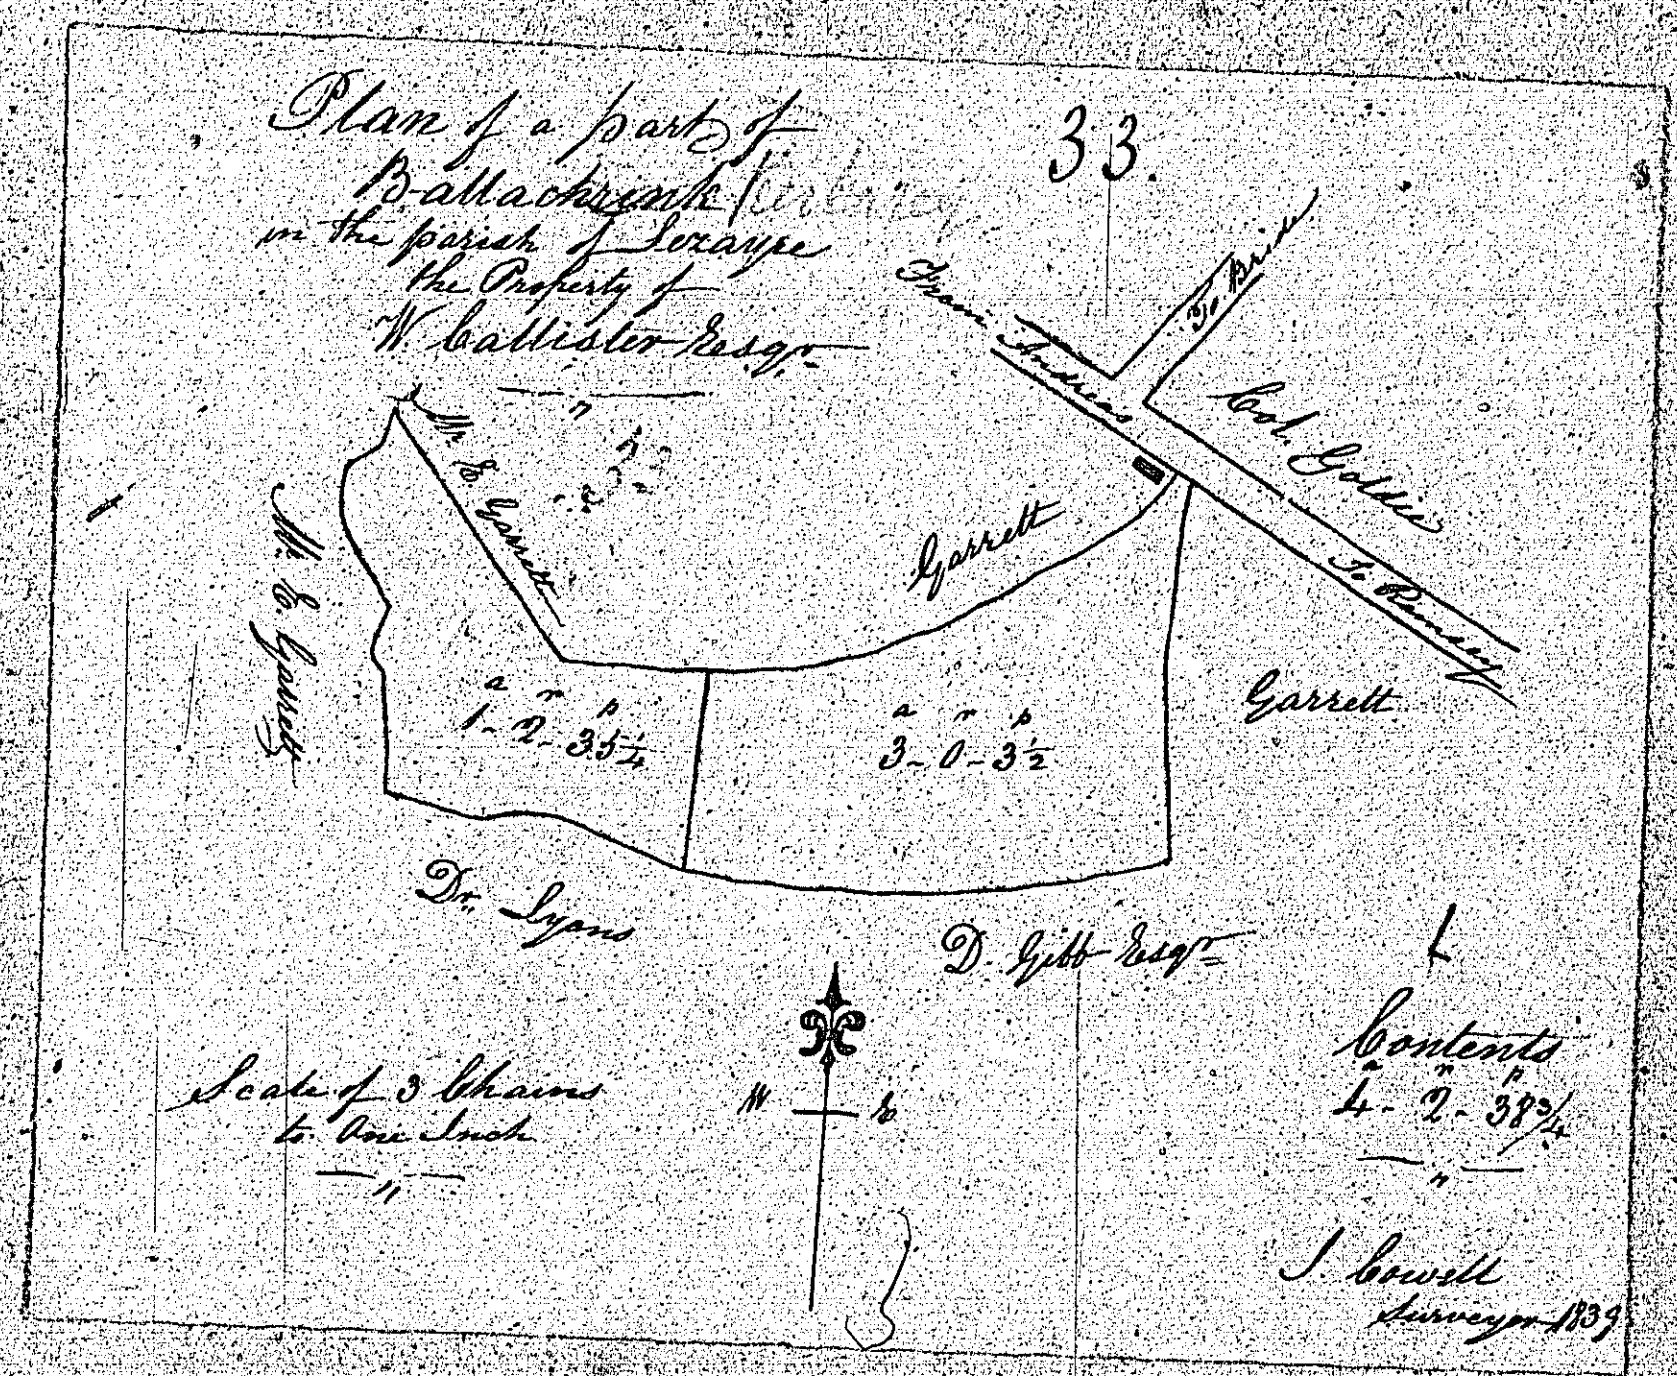 33.
Plan of a part of
Ballachrink
in the parish of Lezayre
the Property of
W. Callister Esqr
From Andreas
To Bride
Col. Goldie
To Ramsey
Mr E Garrett
Garrett
Mr. E. Garrett
Garrett
a r p
1 - 2 - 35 1/4
a r p
3 - 0 - 3 1/2
Dr. Lyons
D. Gibb Esqr
Scale of 3 Chains
to One Inch
W E
Contents
a r p
4 - 2 - 38 3/4
J. Cowell
Surveyor 1839